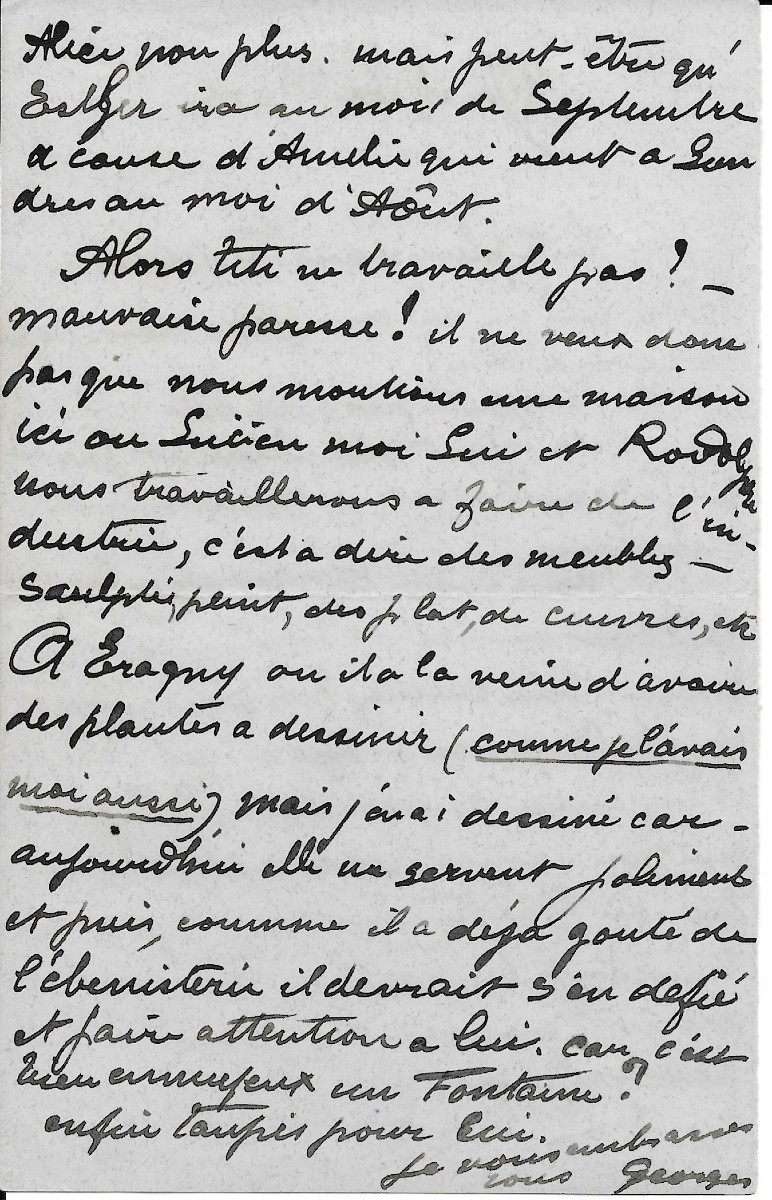 Alice non plus. mais peut-être qu'
Esther ira au mois de Septembre
a cause d'Amelie qui vient a Lon
dres au moi d'Aôut.
Alors titi ne travaille pas! _
mauvaise paresse! il ne veux donc
pas que nous montions une maison
ici ou Lucien moi Lui et Rodolphe
nous travaillerons a faire de l'in-
dustrie, c'est a dire des meubles _
Sculpté, peint, des plat, de cuivres, etc
A Eragny ou il a la veine d'avoire
des plantes a dessinir (comme je l'avais
moi aussi) mais j'en ai dessiné car -
aujourdhui elle me servent joliment
et puis, coumme il a déja gouté de
l'ébenisterie il devrait s'en defié
et faire attention a lui. car, c'est
bien ennuyeux un Fontaine?
enfin tanpis pour lui.
je vous embrasses
tous Georges